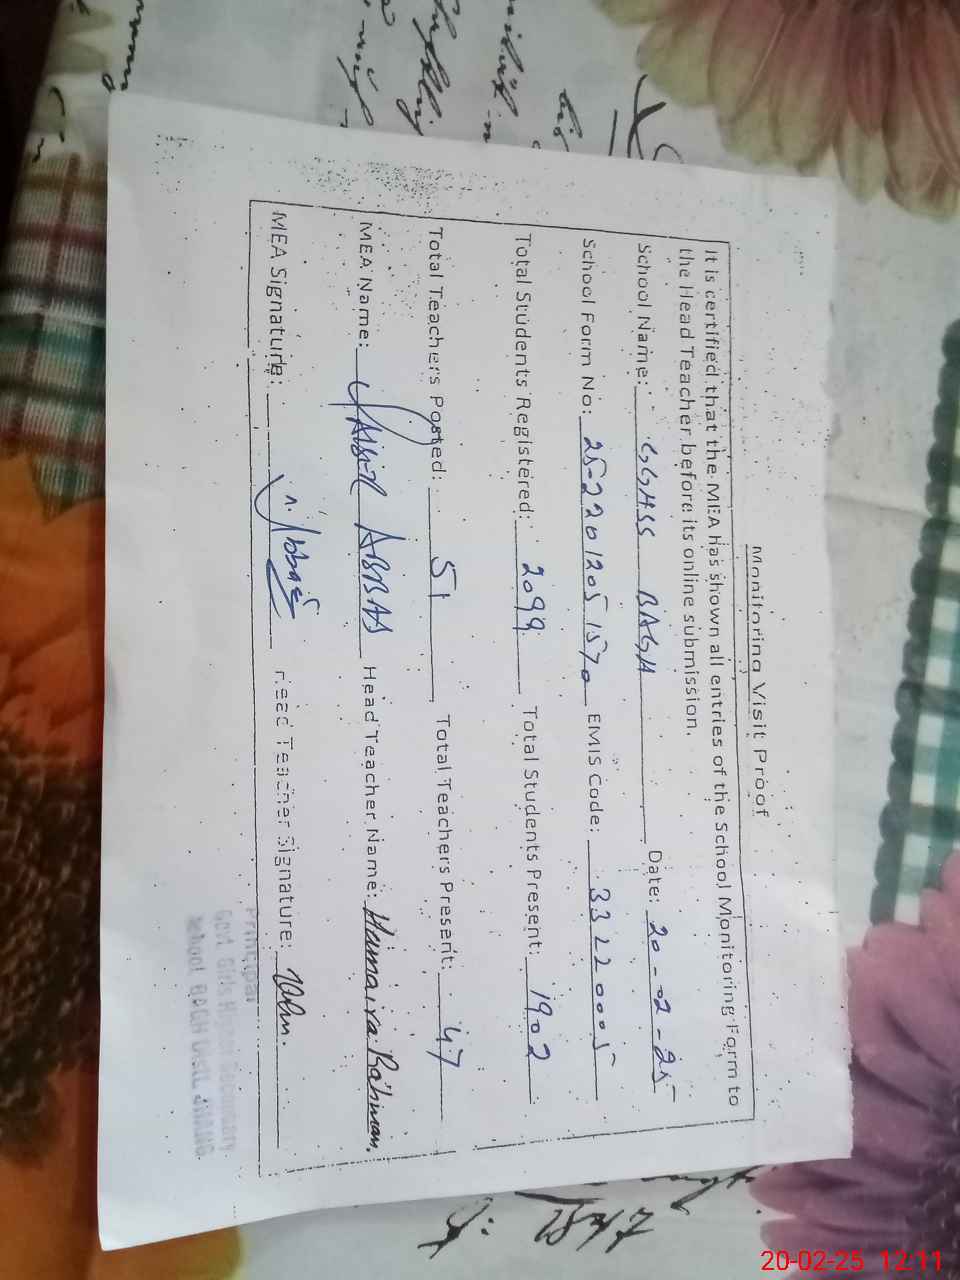 Monitoring Visit Proof
It is certified that the MEA has shown all entries of the School Monitoring Form to
the Head Teacher before its online submission.
School Name: GGHSS BAGH Date: 20-02-25
School Form No: 25-22012051570 EMIS Code: 33220005
Total Students Registered: 2099 Total Students Present: 1902
Total Teachers Posted: 51 Total Teachers Present: 47
MEA Name: ABBAS Head Teacher Name: Humaira Rahman.
MEA Signature: Abbas Head Teacher Signature:
Principal
Govt. Girls Higher Secondary
School, BAGH Distt. JHANG
20-02-25 12:11